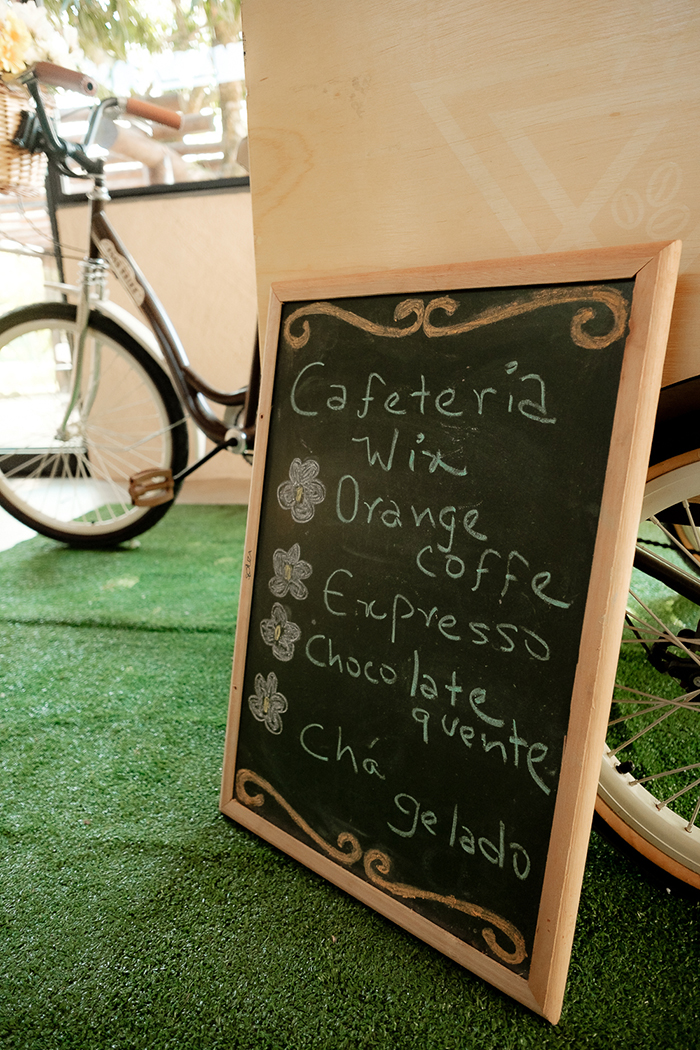 Cafeteria
Wix
Orange
coffe
Expresso
Chocolate
quente
Chá
gelado